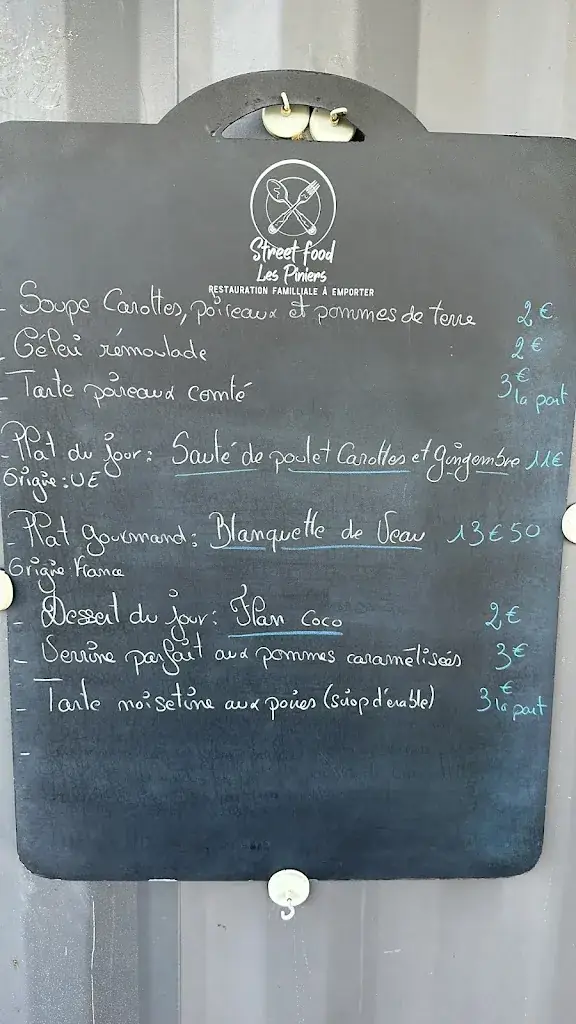 Street food
Les Piniers
RESTAURATION FAMILLIALE À EMPORTER
- Soupe Carottes, poireaux et pommes de terre 2€
- Céleri rémoulade 2€
- Tarte poireaux comté 3€ la part
- Plat du jour : Sauté de poulet Carottes et gingembre 11€
Origine : UE
- Plat gourmand : Blanquette de Veau 13€50
Origine France
- Dessert du jour : Flan coco 2€
- Verrine parfait aux pommes caramélisées 3€
- Tarte noisetine aux poires (sirop d'érable) 3€ la part
-